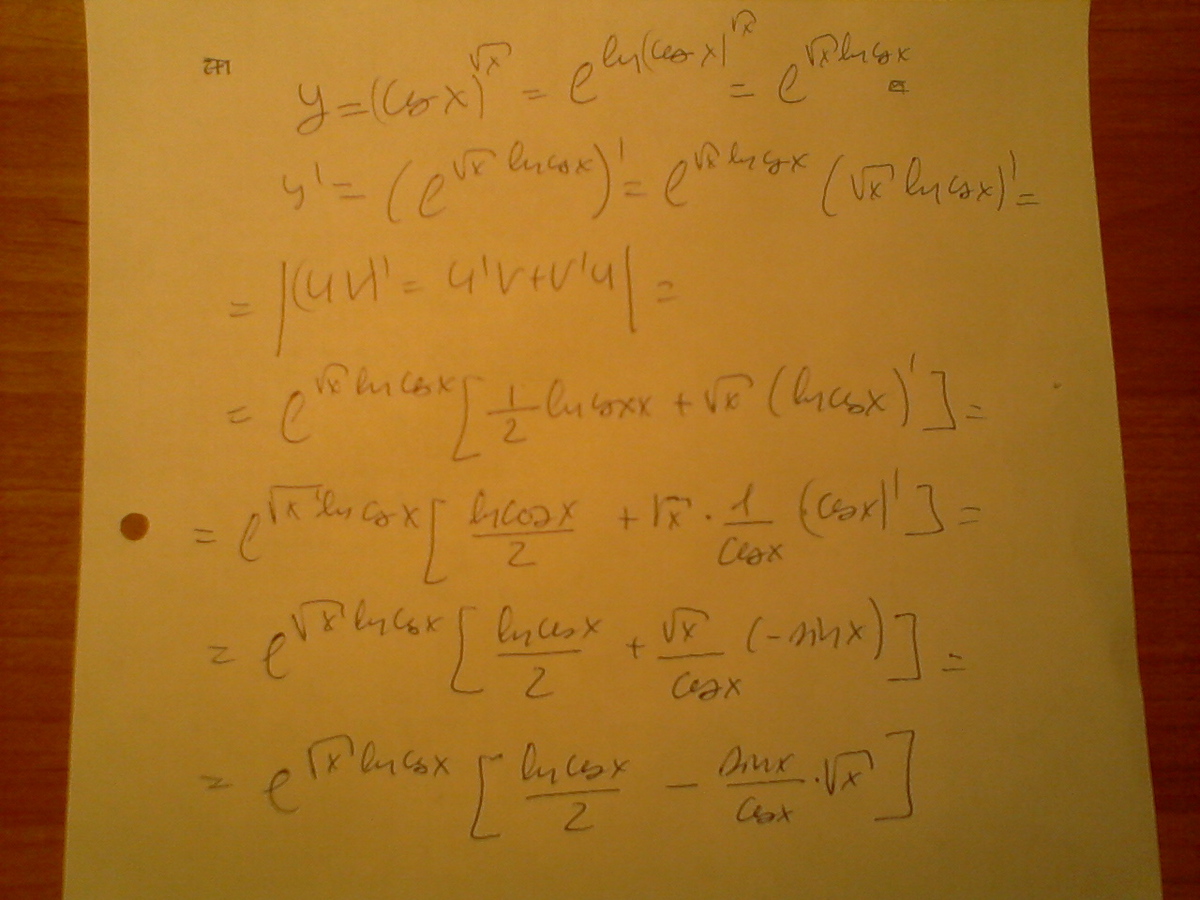 y = (cos x)^√x = e^ln(cos x)^√x = e^√x ln cos x
y' = (e^√x ln cos x)' = e^√x ln cos x (√x ln cos x)' =
= |(uv)' = u'v + v'u| =
= e^√x ln cos x [1/2 ln cos xx + √x (ln cos x)'] =
= e^√x ln cos x [ln cos x/2 + √x · 1/cos x (cos x)'] =
= e^√x ln cos x [ln cos x/2 + √x/cos x (-sin x)] =
= e^√x ln cos x [ln cos x/2 - sin x/cos x · √x]